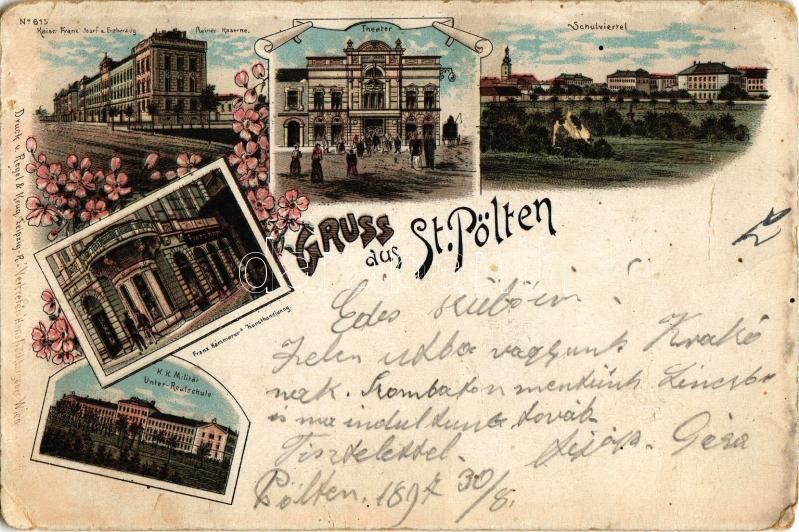 No 615
Kaiser Franz Josef u. Erzherzog Rainer Kaserne.
Theater
Schulviertel
Druck v. Regel & Krug, Leipzig-R.
Franz Hammerer's Kunsthandlung.
K.K. Militär
Unter-Realschule
GRUSS
aus St. Pölten
Édes
útba vagyunk Krakó
nak. Szombaton mentünk Lincbe
is ma indultunk tovább
Tisztelettel. Géza
Pölten, 1897 30/8.